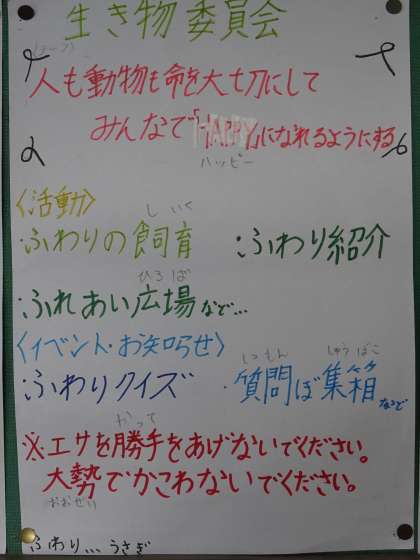 生き物委員会
(テーマ)
人も動物も命を大切にして
みんなで「HAPPY」になれるようにする
ハッピー
〈活動〉
しいく
・ふわりの飼育 ・ふわり紹介
ひろば
・ふれあい広場など…
〈イベント・お知らせ〉
しつもん しゅうばこ
・ふわりクイズ ・質問ぼ集箱など
かって
※エサを勝手をあげないでください。
大勢でかこわないでください。
おおせい
ふわり…うさぎ